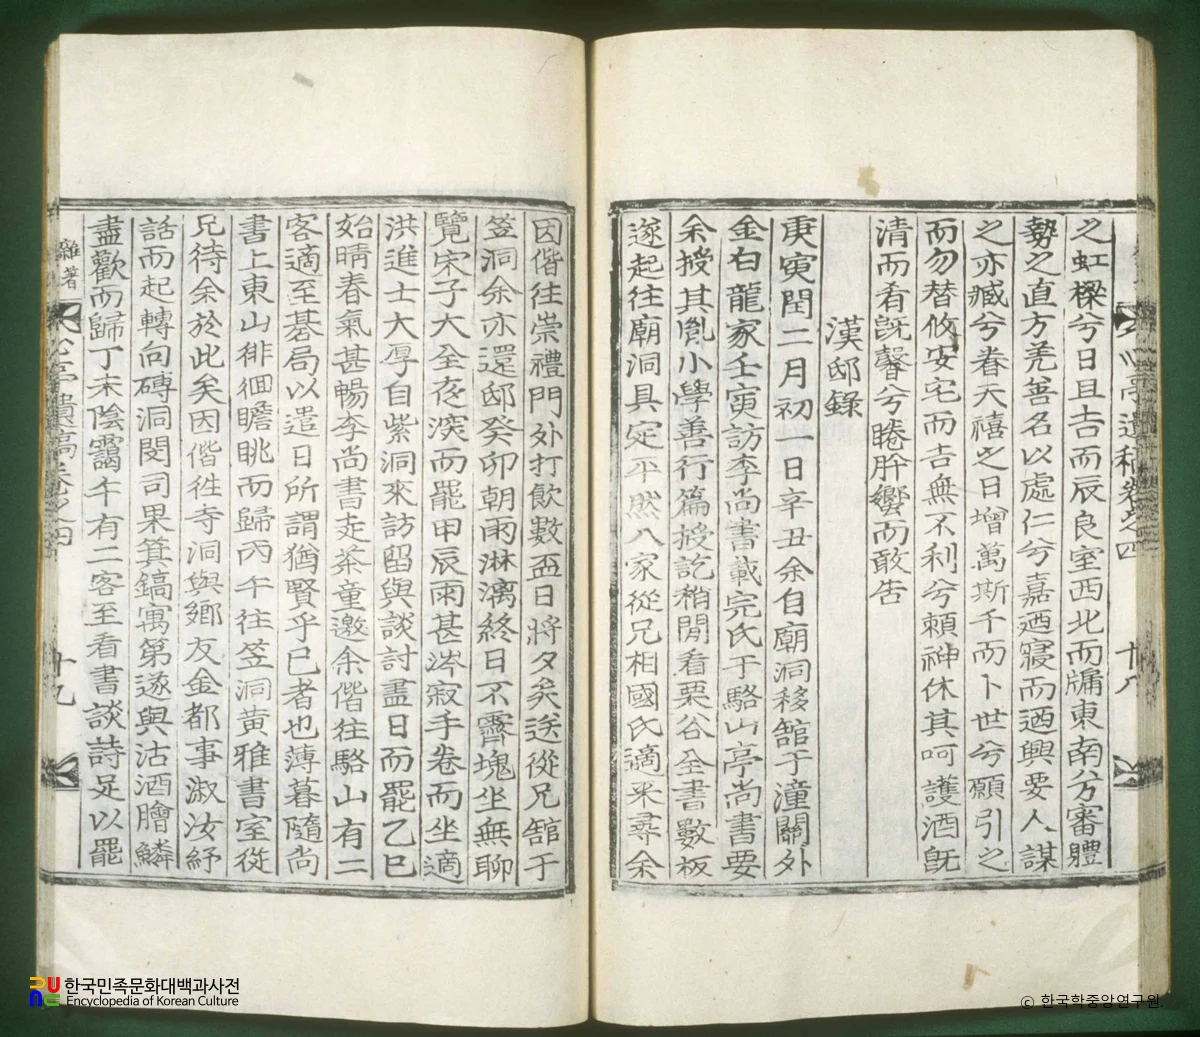 之虹樑兮日且吉而辰良室西北而牖東南方審體
勢之直方羌善名以處仁兮嘉迺寢而迺興要人謀
之亦臧兮眷天禧之日增萬斯千而卜世兮願引之
而勿替攸安宅而吉無不利兮賴神休其呵護酒旣
清而肴旣馨兮睠肸蠁而敢告
漢邸錄
庚寅閏二月初一日辛丑余自廟洞移舘于潼關外
金右龍家壬寅訪李尙書載完氏于駱山亭尙書要
余授其胤小學善行篇授訖稍閒看栗谷全書數板
遂起往廟洞具定平然八家從兄相國氏適來尋余
因偕往崇禮門外打飮數盃日將夕矣送從兄舘于
笠洞余亦還邸癸卯朝雨淋漓終日不霽塊坐無聊
覽宋子大全夜深而罷甲辰雨甚涔寂手卷而坐適
洪進士大厚自紫洞來訪留與談討盡日而罷乙巳
始晴春氣甚暢李尙書走茶童邀余偕往駱山有二
客適至碁局以遣日所謂猶賢乎已者也薄暮隨尙
書上東山徘徊瞻眺而歸丙午往笠洞黃雅書室從
兄待余於此矣因偕徃寺洞與鄕友金都事淑汝紓
話而起轉向磚洞閔司果箕鎬寓第遂與沽酒膾鱗
盡歡而歸丁未陰靄午有二客至看書談詩足以罷
雜著
亭遺稿卷之四
十九
亭遺稿卷之四
十八
한국민족문화대백과사전
Encyclopedia of Korean Culture
© 한국학중앙연구원